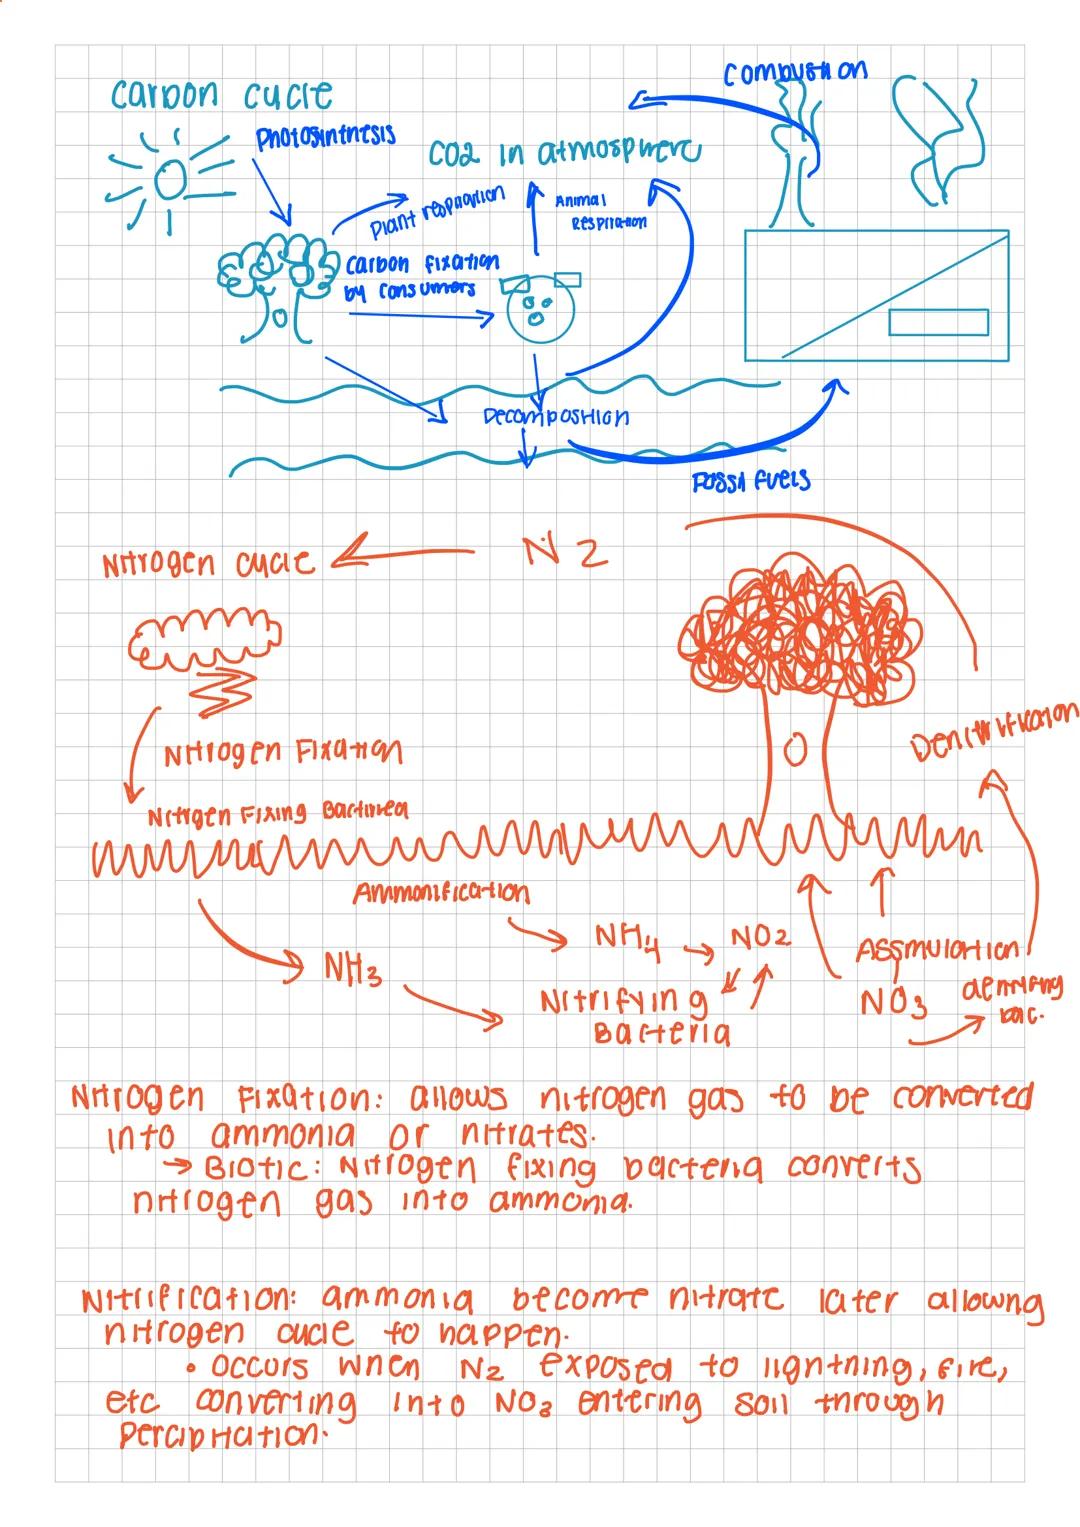 Carbon cycle
Combustion
Photosintnesis
CO2 in atmosphere
Plant respiration
Animal
Respiration
Carbon fixation
by consumers
Decomposition
Fossil fuels
Nitrogen cycle
N2
Nitrogen Fixation
Denitrification
Ammonification
NH4
NO2
NH3
Assmulation
Nitrifying
Bacteria
NO3
bac.
Nitrogen Fixation: allows nitrogen gas to be converted
into ammonia or nitrates.
→ Biotic: Nitrogen fixing bacteria converts
nitrogen gas into ammonia.
Nitrification: ammonia become nitrate later allowng
nitrogen cycle to happen.
• occurs when N2 exposed to lightning, fire,
etc converting into NO3 entering soil through
percipitation.